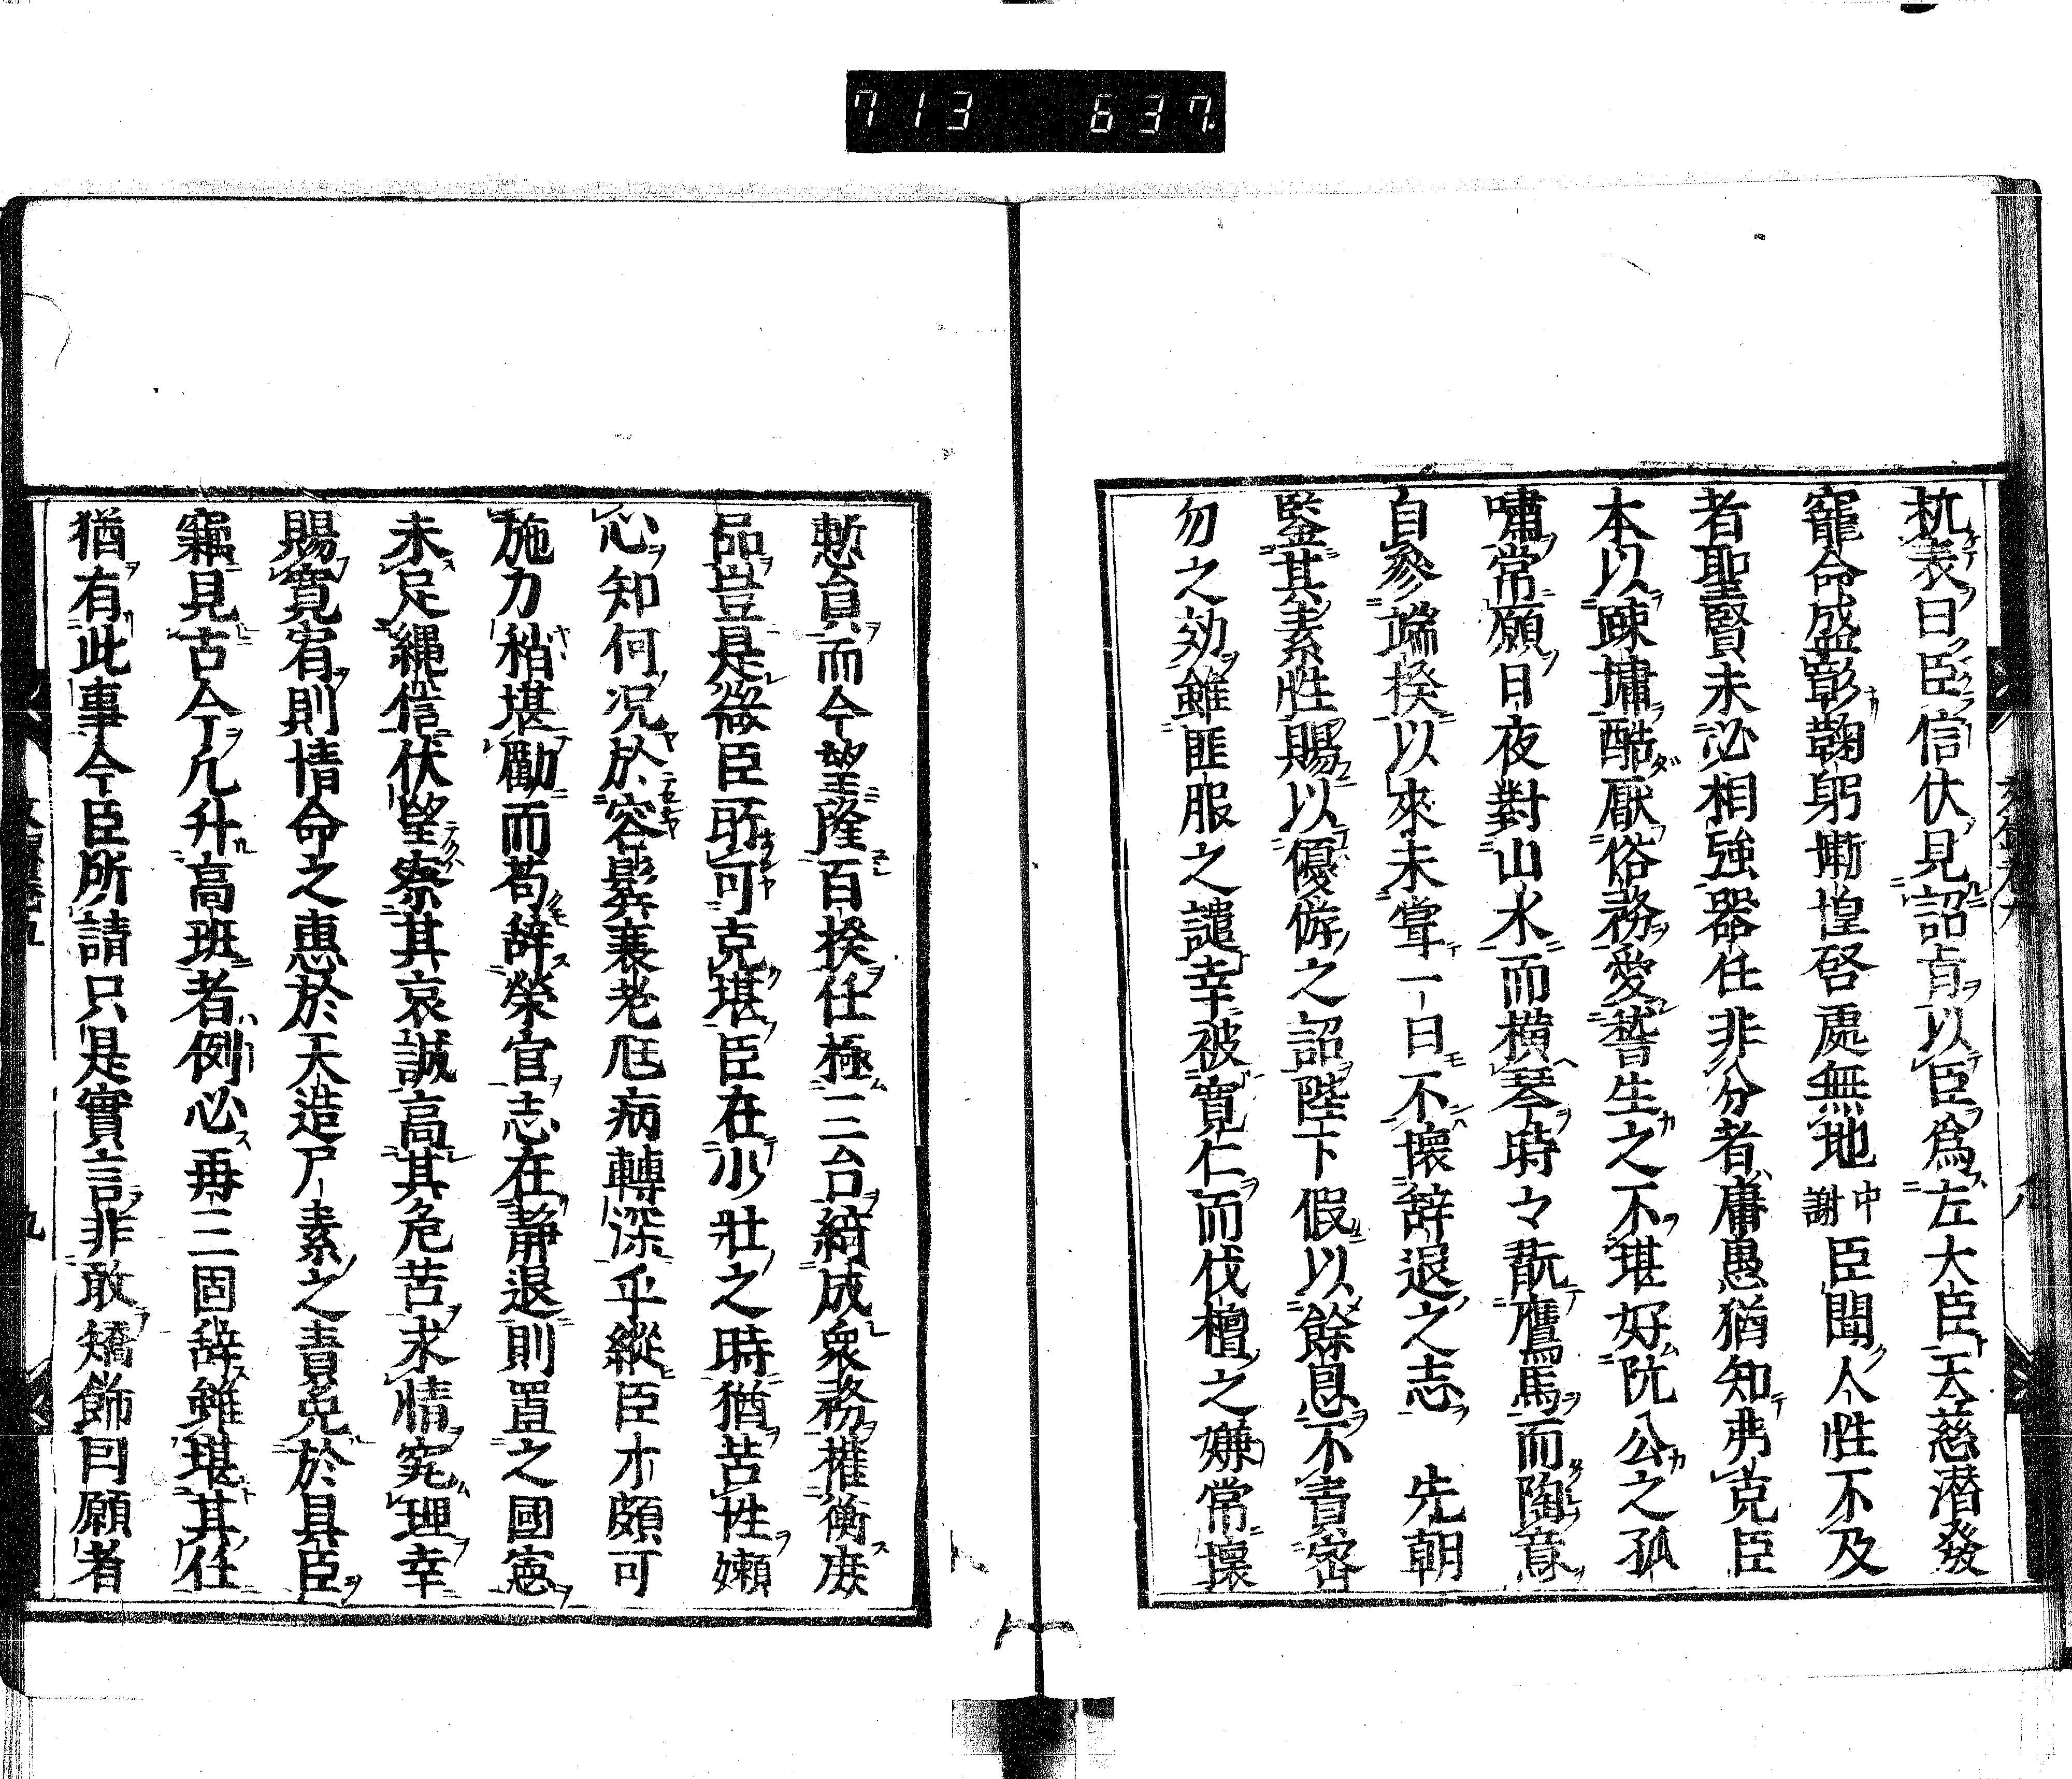 713 637
抗表曰臣信伏見詔旨以臣爲左大臣天慈潜發
寵命盛彰鞠躬慚惶啓處無地中謝臣聞人性不及
者聖賢未必相強器任非分者庸愚猶知弗克臣
本以踈墉酷厭俗務愛嵆生之不堪好阮公之孤
嘯常願日夜對山水而横琴時々翫鷹馬而陶意
自參端揆以來未嘗一日不懷辞退之志 先朝
鑒其素性賜以優游之詔陛下假以餘息不責密
勿之効雖匪服之譴幸被寛仁而伐檀之嫌常壊
慙負而今望隆百揆任極三台綺成衆務權衡庶
品豈是微臣所可克堪臣在少壮之時猶苦性嬾
心知何况於容髮衰老尫病轉深乎縱臣才頗可
施力稍堪勵而苟辞榮官志在静退則置之國憲
未足繩信伏望察其哀誠高其危苦求情宛理幸
賜寛宥則情命之惠於天造尸素之責免於具臣
竊見古今凡升高班者例必再三固辞雖堪其任
猶有此事今臣所請只是實言非敢矯飾冐願者